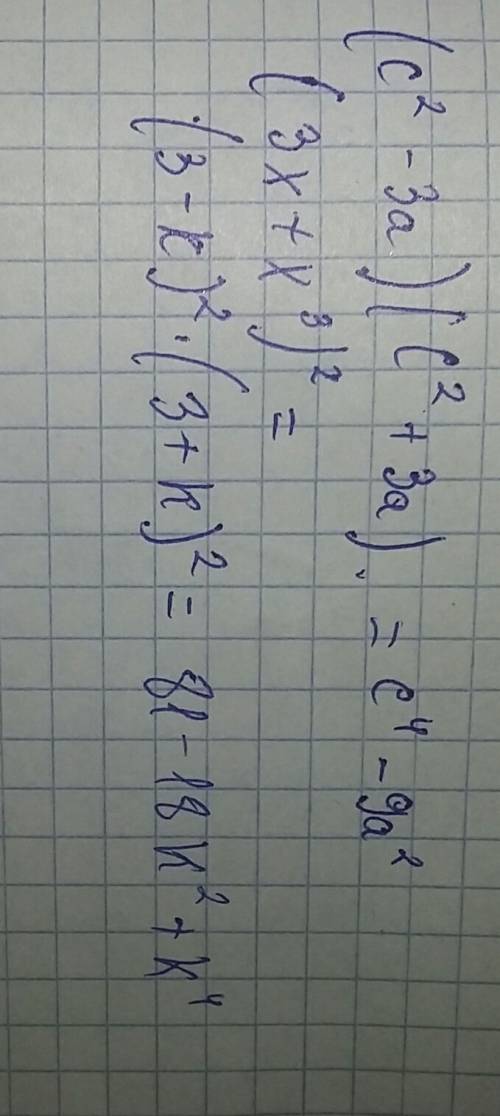 (c² - 3a)(c² + 3a) = c⁴ - 9a²
(3x + x³)² =
(3 - k)² · (3 + k)² = 81 - 18k² + k⁴